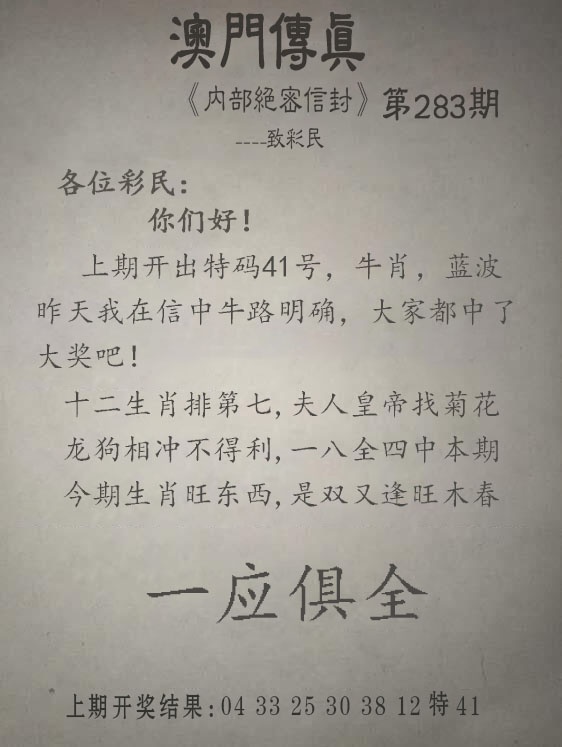 澳門傳眞
《内部絕密信封》第283期
----致彩民
各位彩民：
你们好！
上期开出特码41号，牛肖，蓝波
昨天我在信中牛路明确，大家都中了
大奖吧！
十二生肖排第七,夫人皇帝找菊花
龙狗相冲不得利,一八全四中本期
今期生肖旺东西,是双又逢旺木春
一应俱全
上期开奖结果:04 33 25 30 38 12 特 41